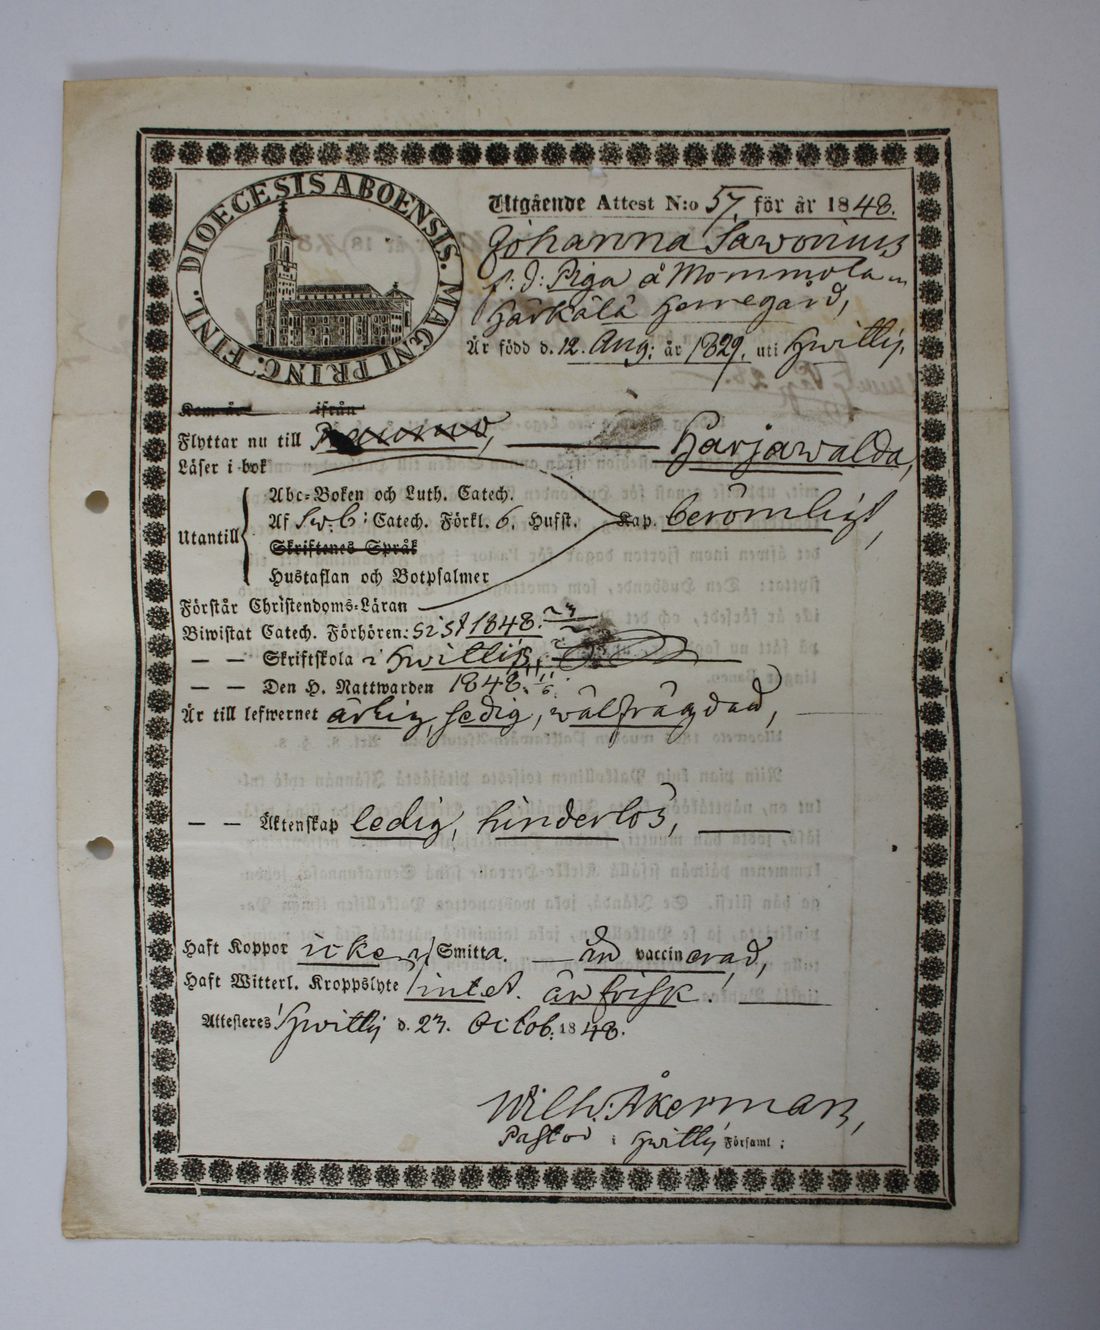 DIOECESIS ABOENSIS. MAGNI PRINC. FINL.
Utgående Attest N:o 57. för år 1848.
Johanna Sawonius
f. d. Piga å Mommola
Härkälä herregård,
Är född d. 12. Aug: år 1829. uti Hwittis,
Kom år ifrån
Flyttar nu till Harjawalda,
Läser i bok
Abc-Boken och Luth. Catech.
Utantill Af Sweb: Catech. Förkl. 6. Hufst. Kap. berömligt,
Skriftenes Språk
Hustaflan och Botpsalmer
Förstår Christendoms-Läran
Biwistat Catech. Förhören: sist 1848.
— — Skriftskola i Hwittis,
— — Den H. Nattwarden 1848.
Är till lefwernet ärlig, sedig, wälfrägdad,
— — Äktenskap ledig, hinderlös,
Haft Koppor icke Smitta. — än vaccinerad,
Haft Witterl. Kroppslyte intet. är frisk.
Attesteras Hwittis d. 23. Octob: 1848.
Wilh: Åkerman,
Pastor i Hwittis Församl: